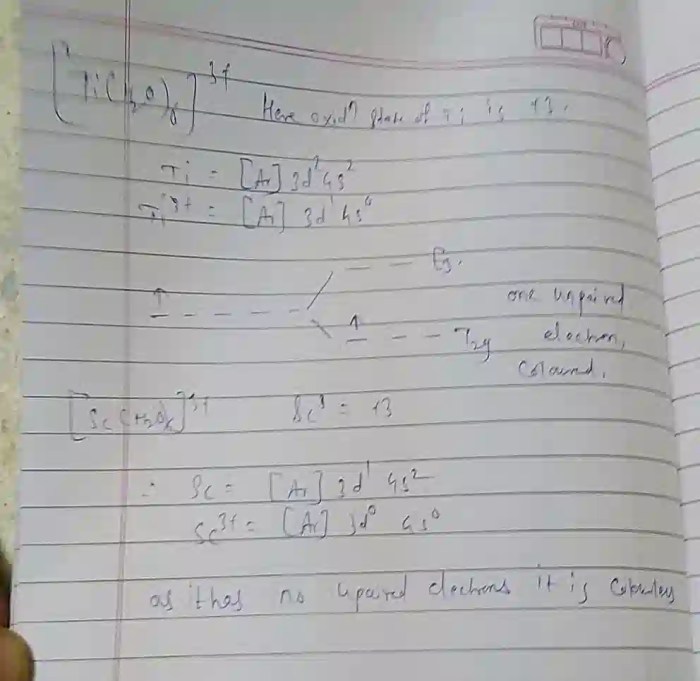 [Ti(H2O)6]3+ Here oxidn state of Ti is +3.
Ti = [Ar] 3d2 4s2
Ti3+ = [Ar] 3d1 4s0
Eg.
one unpaired
T2g electron,
coloured.
[Sc(H2O)6]3+ Sc = +3
∴ Sc = [Ar] 3d1 4s2
Sc3+ = [Ar] 3d0 4s0
as it has no upaired electrons it is